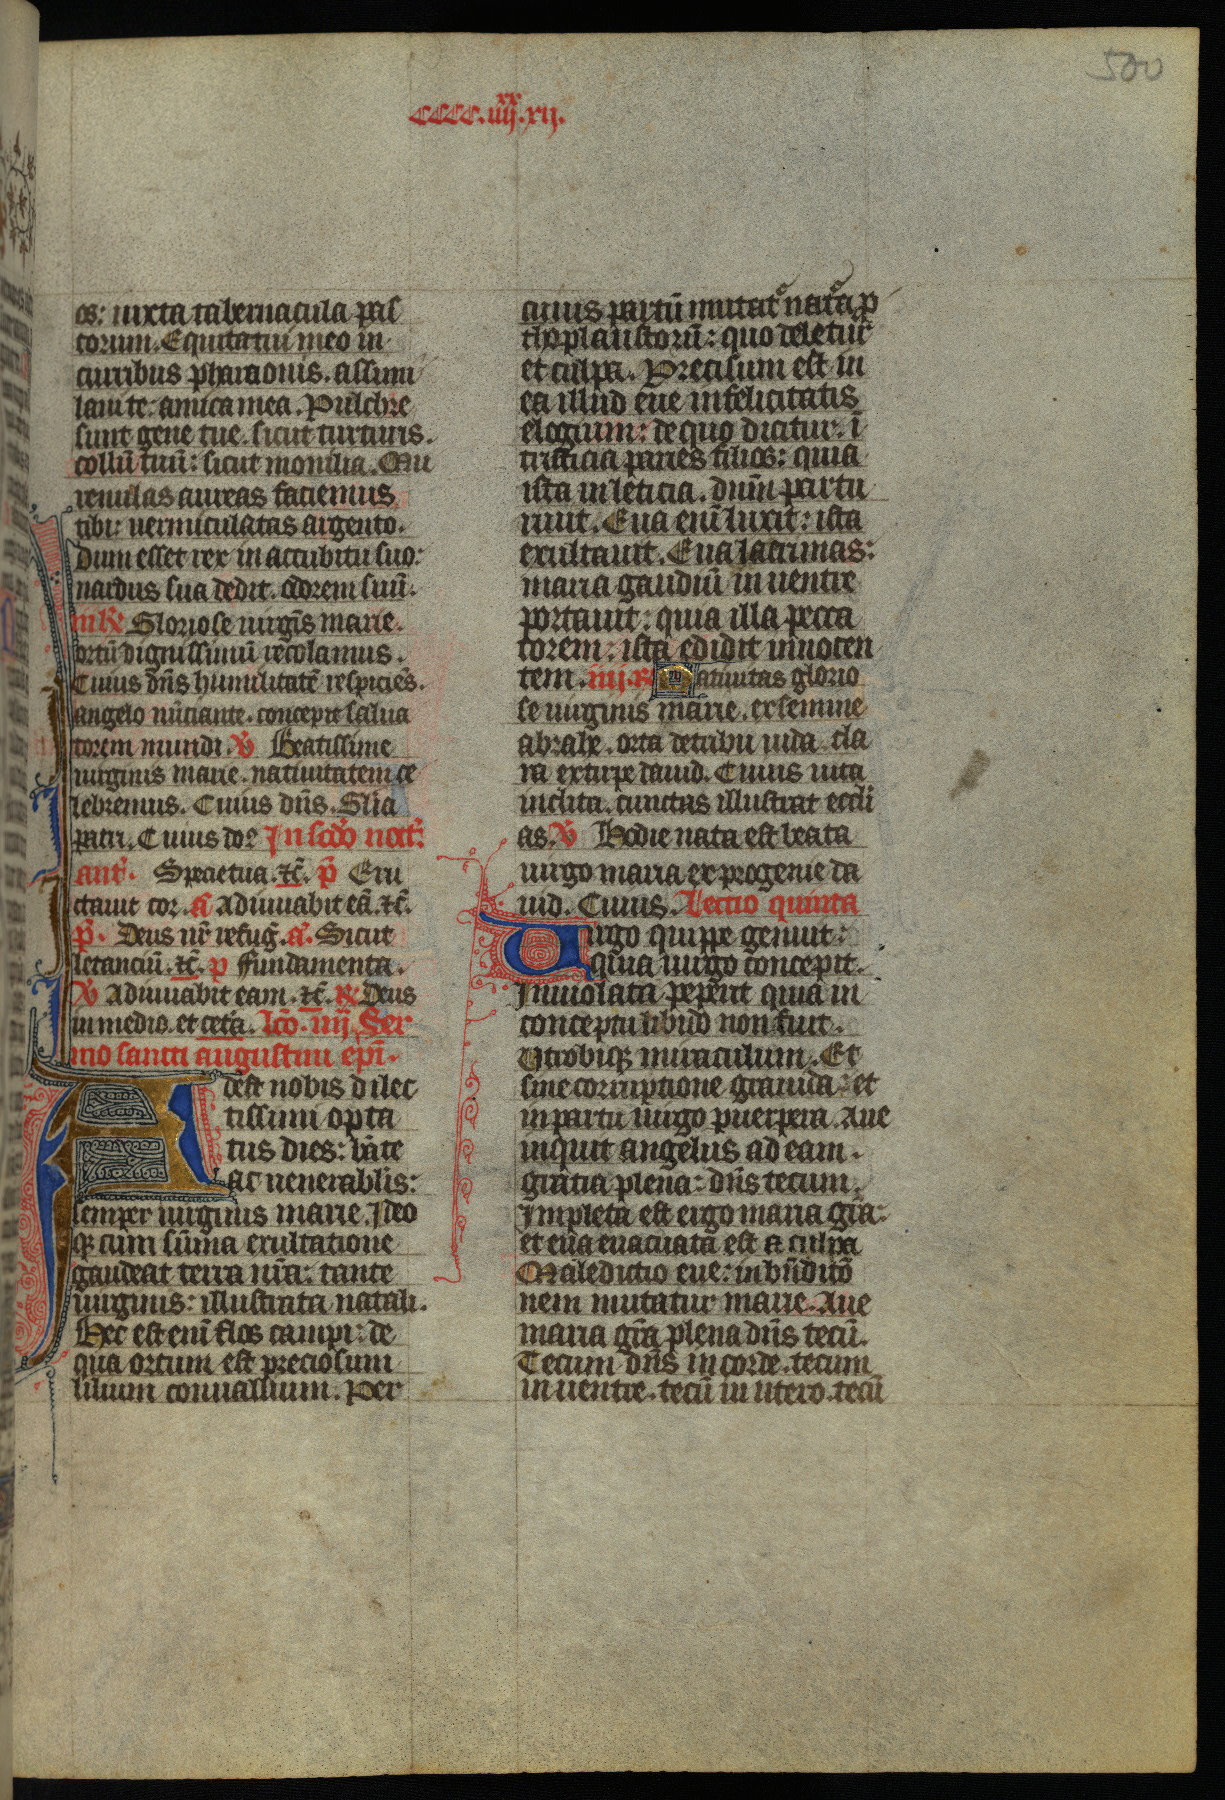 500
CCCC.iiijxx.xij.
os: iuxta tabernacula pas
torum. Equitatui meo in
curribus pharaonis. assimi
laui te: amica mea. Pulchre
sunt gene tue. sicut turturis.
collū tuū: sicut monilia. Mu
renulas aureas faciemus
tibi: uermiculatas argento.
Dum esset rex in accubitu suo:
nardus sua dedit. odorem suū.
iij R̄ Gloriose uirgīs marie.
ortū dignissimū recolamus.
Cuius dn̄s humilitatē respiciēs.
angelo nūciante. concepit salua
torem mundi. V̄ Beatissime
uirginis marie. natiuitatem ce
lebremus. Cuius dn̄s. Glīa
patri. Cuius do. In scd̄o noct̄.
ant̄. Specie tua. ⁊c̄. p̄ Eru
ctauit cor. a Adiuuabit eā. ⁊c̄.
p̄. Deus nr̄ refuḡ. a. Sicut
letanciū. ⁊c̄. p Fundamenta.
V̄ Adiuuabit eam. ⁊c̄. R̄ Deus
in medio. et cetā. Lc̄o. iiij Ser
mo sancti augustini ep̄i.
Adest nobis dilec
tissimi opta
tus dies: bāte
ac uenerabilis:
semper uirginis marie. Ideo
qȝ cum sūma exultatione
gaudeat terra nr̄a: tante
uirginis: illustrata natali.
Hec est enī flos campi: de
qua ortum est preciosum
lilium conuallium. Per
cuius partū mutat᷑ nat᷑a p
thoplaustorū: quo deletur
et culpa. Precisum est in
ea illud eue infelicitatis
elogium: de quo dicitur. ī
tristicia paries filios: quia
ista in leticia. dn̄m partu
riuit. Eua enī luxit: ista
exultauit. Eua lacrimas:
maria gaudiū in uentre
portauit: quia illa pecca
torem: ista edidit innocen
tem. iiij. R̄ Natiuitas glorio
se uirginis marie. ex semine
abrahe. orta de tribu iuda. cla
ra ex stirpe dauid. Cuius uita
inclita. cunctas illustrat eccli
as. V̄ Hodie nata est beata
uirgo maria ex progenie da
uid. Cuius. Lectio quinta
Uirgo quippe genuit:
q̄uia uirgo concepit.
Inuiolata peperit quia in
conceptu libido non fuit.
Vtrobiqȝ miraculum. Et
sine corruptione grauida: et
in partu uirgo puerpera. Aue
inquit angelus ad eam.
gratia plena: dn̄s tecum.
Impleta est ergo maria gr̄a:
et eua euacuata est a culpa
Maledictio eue: in bn̄dictō
nem mutatur marie. Aue
maria gr̄a plena dn̄s tecū.
Tecum dn̄s in corde. tecum
in uentre. tecū in utero. tecū